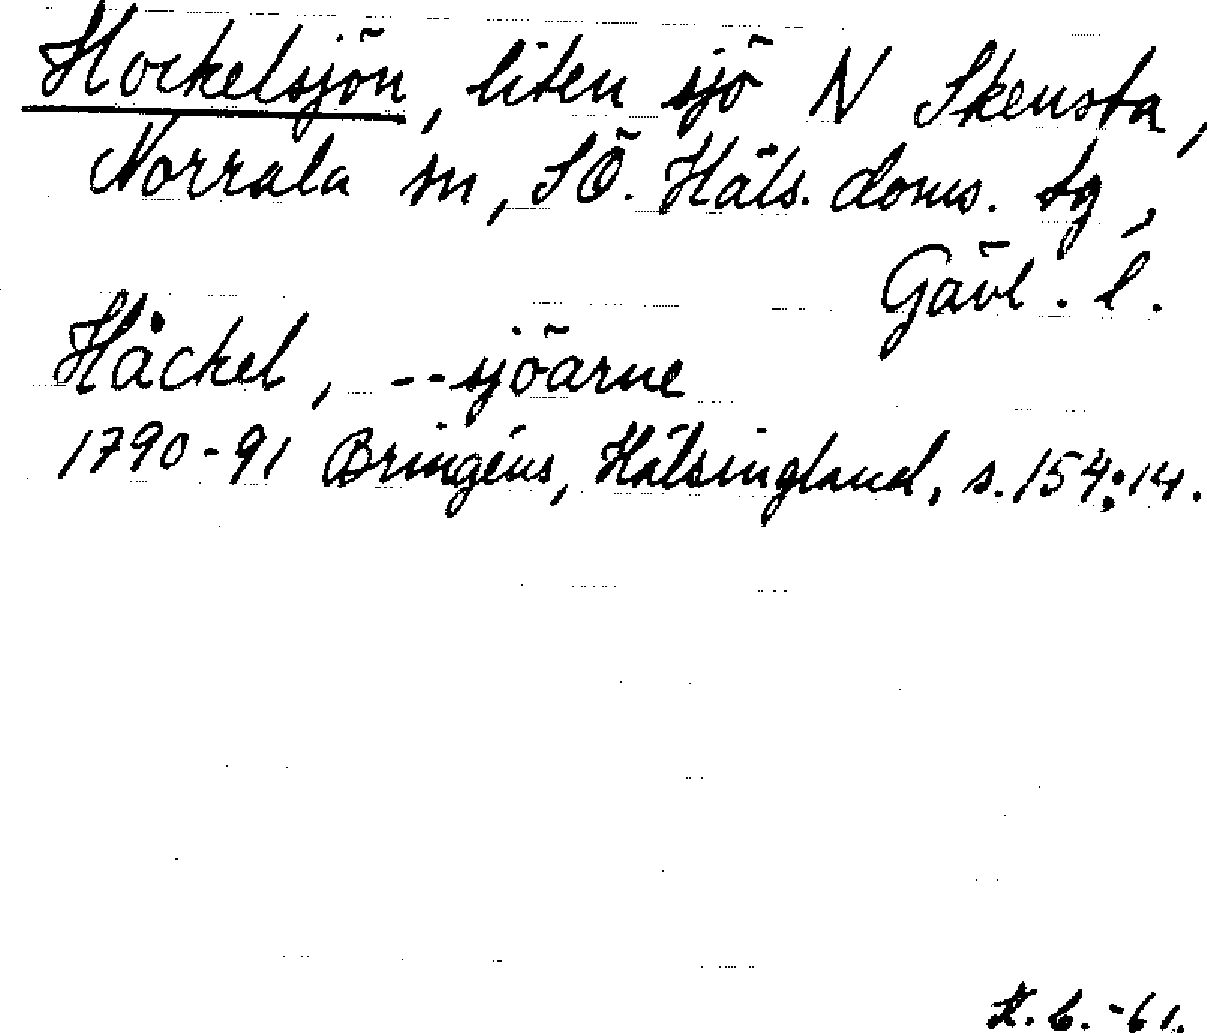 Hockelsjön, liten sjö N Skensta,
Norrala sn, SÖ. Häls. doms. tg,
Gävl. l.
Håckel, --sjöarne
1790-91 Bringéus, Hälsingland, s. 154:14.
-61.